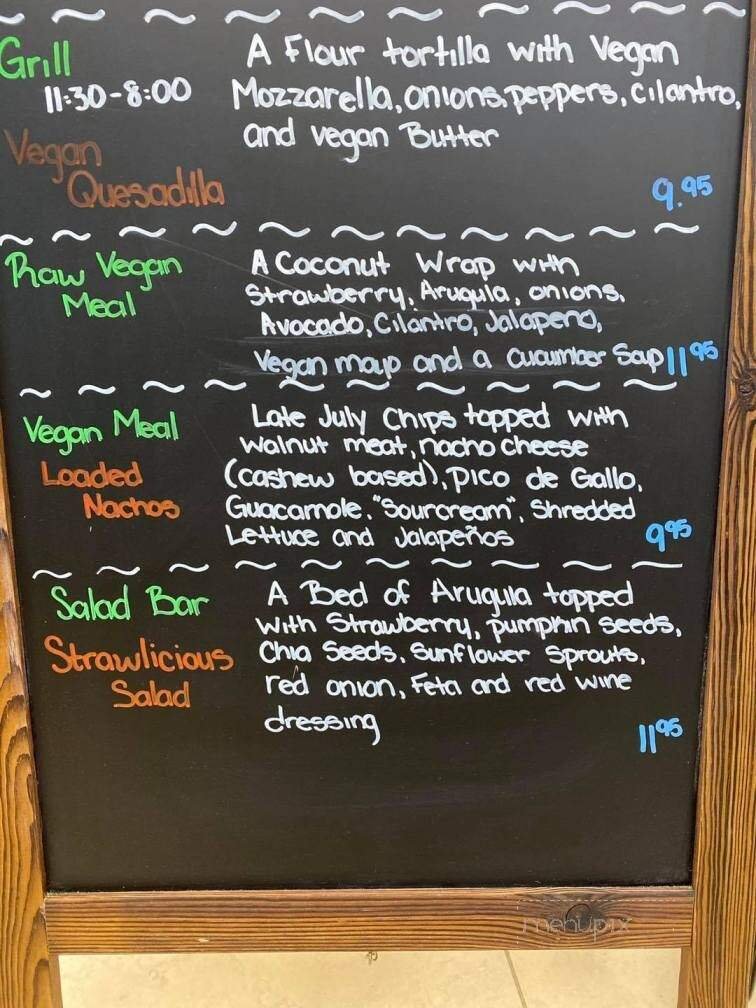 Grill
11:30-8:00
Vegan
Quesadilla
A Flour tortilla with Vegan
Mozzarella, onions, peppers, cilantro,
and vegan Butter
9.95
Raw Vegan
Meal
A Coconut Wrap with
Strawberry, Arugula, onions,
Avocado, Cilantro, Jalapeno,
Vegan mayo and a cucumber Soup 11.95
Vegan Meal
Loaded
Nachos
Late July Chips topped with
walnut meat, nacho cheese
(cashew based), pico de Gallo,
Guacamole, "Sourcream", Shredded
Lettuce and Jalapeños
9.95
Salad Bar
Strawlicious
Salad
A Bed of Arugula topped
with Strawberry, pumpkin seeds,
Chia Seeds, Sunflower Sprouts,
red onion, Feta and red wine
dressing
11.95
menupix